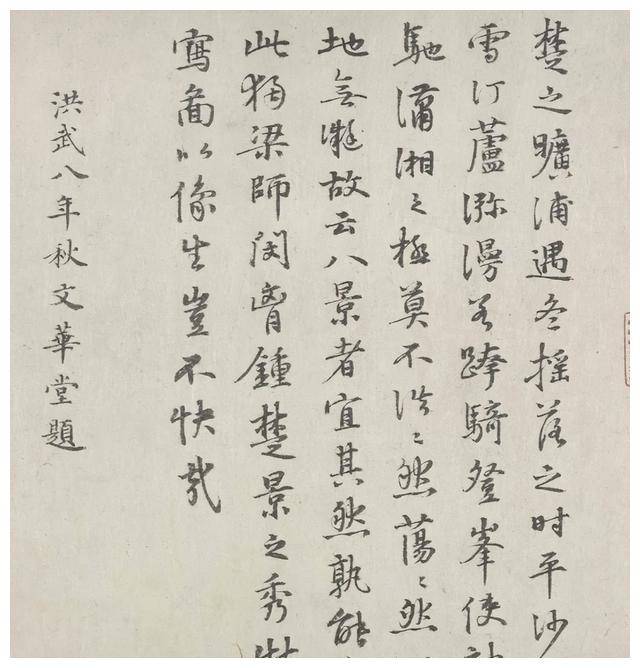 楚之曠浦遇冬揺落之时平沙
雪汀蘆瀰漫若跨騎登峯使
馳瀟湘之極莫不洪〻然蕩〻然
地無礙故云八景者宜其然孰能
此獨梁師閔胷鍾楚景之秀
寫啚以像生豈不快哉
洪武八年秋文華堂題